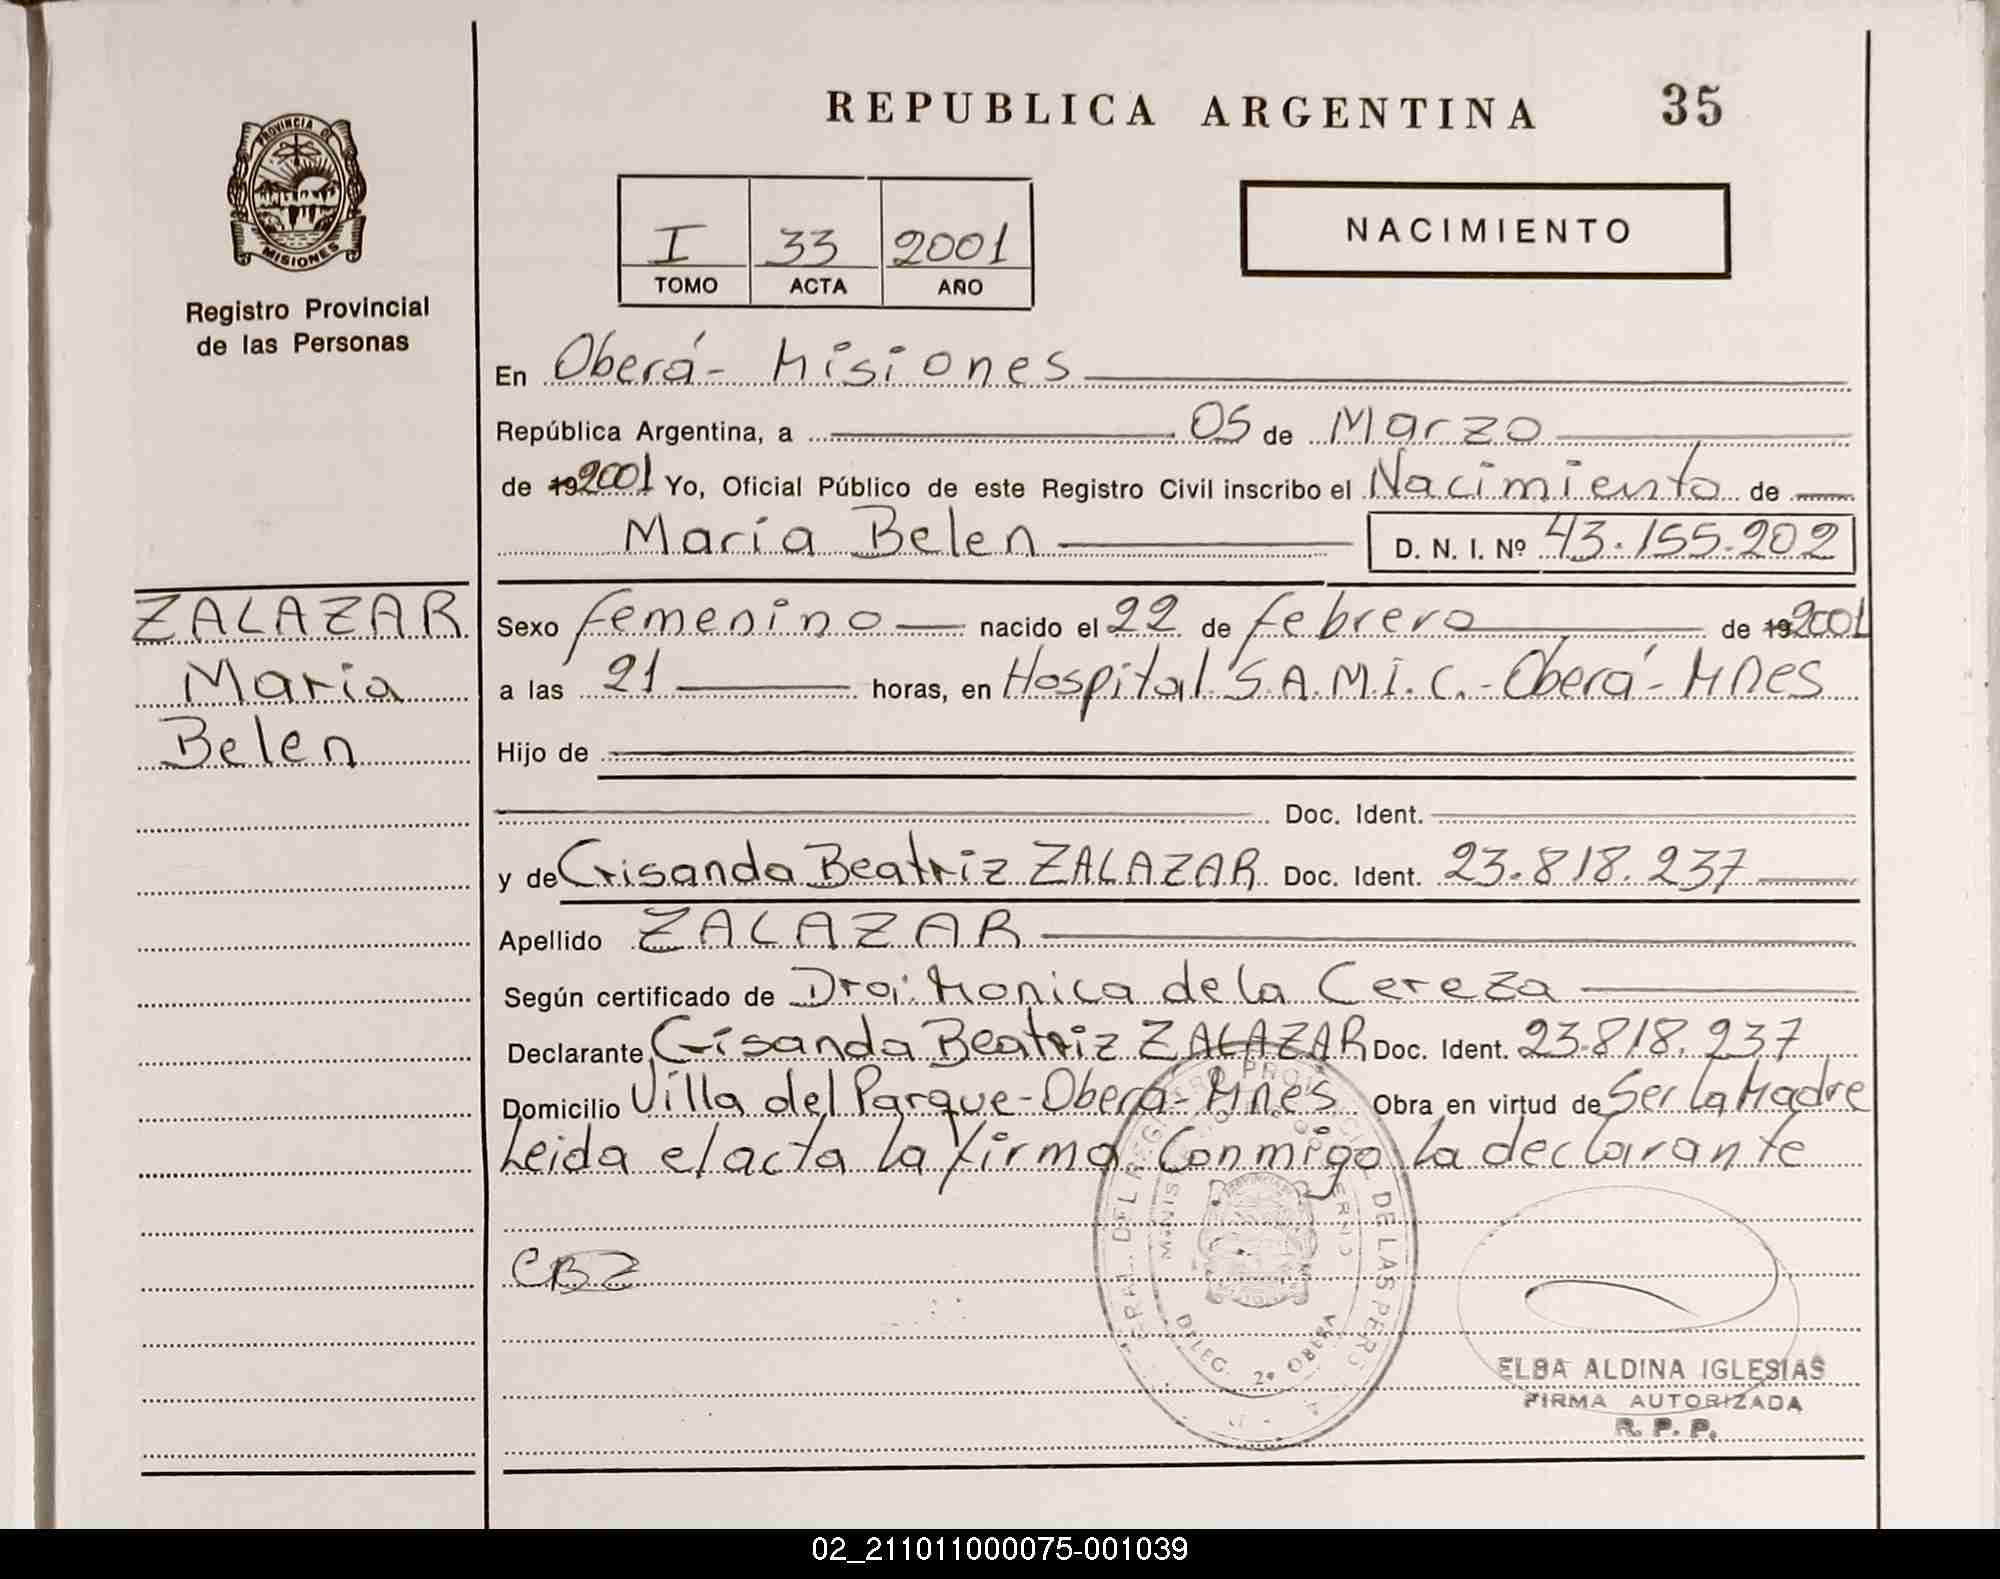 REPUBLICA ARGENTINA 35
PROVINCIA DE
MISIONES
Registro Provincial
de las Personas
I 33 2001
TOMO ACTA AÑO
NACIMIENTO
En Oberá - Misiones
República Argentina, a 05 de Marzo
de 192001 Yo, Oficial Público de este Registro Civil inscribo el Nacimiento de
María Belen D. N. I. Nº 43.155.202
ZALAZAR
Maria
Belen
Sexo femenino nacido el 22 de febrero de 192001
a las 21 horas, en Hospital S.A.M.I.C. - Oberá - Mnes
Hijo de
Doc. Ident.
y de Crisanda Beatriz ZALAZAR Doc. Ident. 23.818.237
Apellido ZALAZAR
Según certificado de Dra: Monica de la Cereza
Declarante Crisanda Beatriz ZALAZAR Doc. Ident. 23.818.237
Domicilio Villa del Parque - Oberá - Mnes Obra en virtud de Ser la Madre
Leida el acta la firma Conmigo la declarante
CBZ
DEL REGISTRO PROVINCIAL DE LAS PERS
DELEG. 2ª OBERA
ELBA ALDINA IGLESIAS
FIRMA AUTORIZADA
R. P. P.
02_211011000075-001039